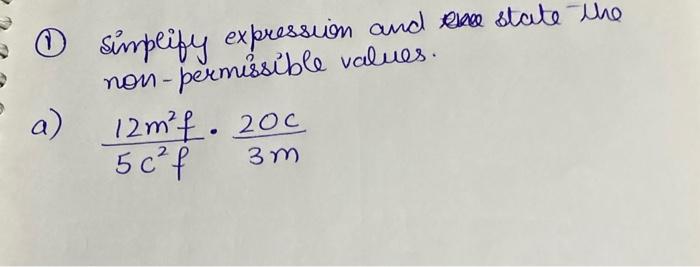 ① simplify expression and state the
non-permissible values.
a) 12m²f/5c²f · 20c/3m